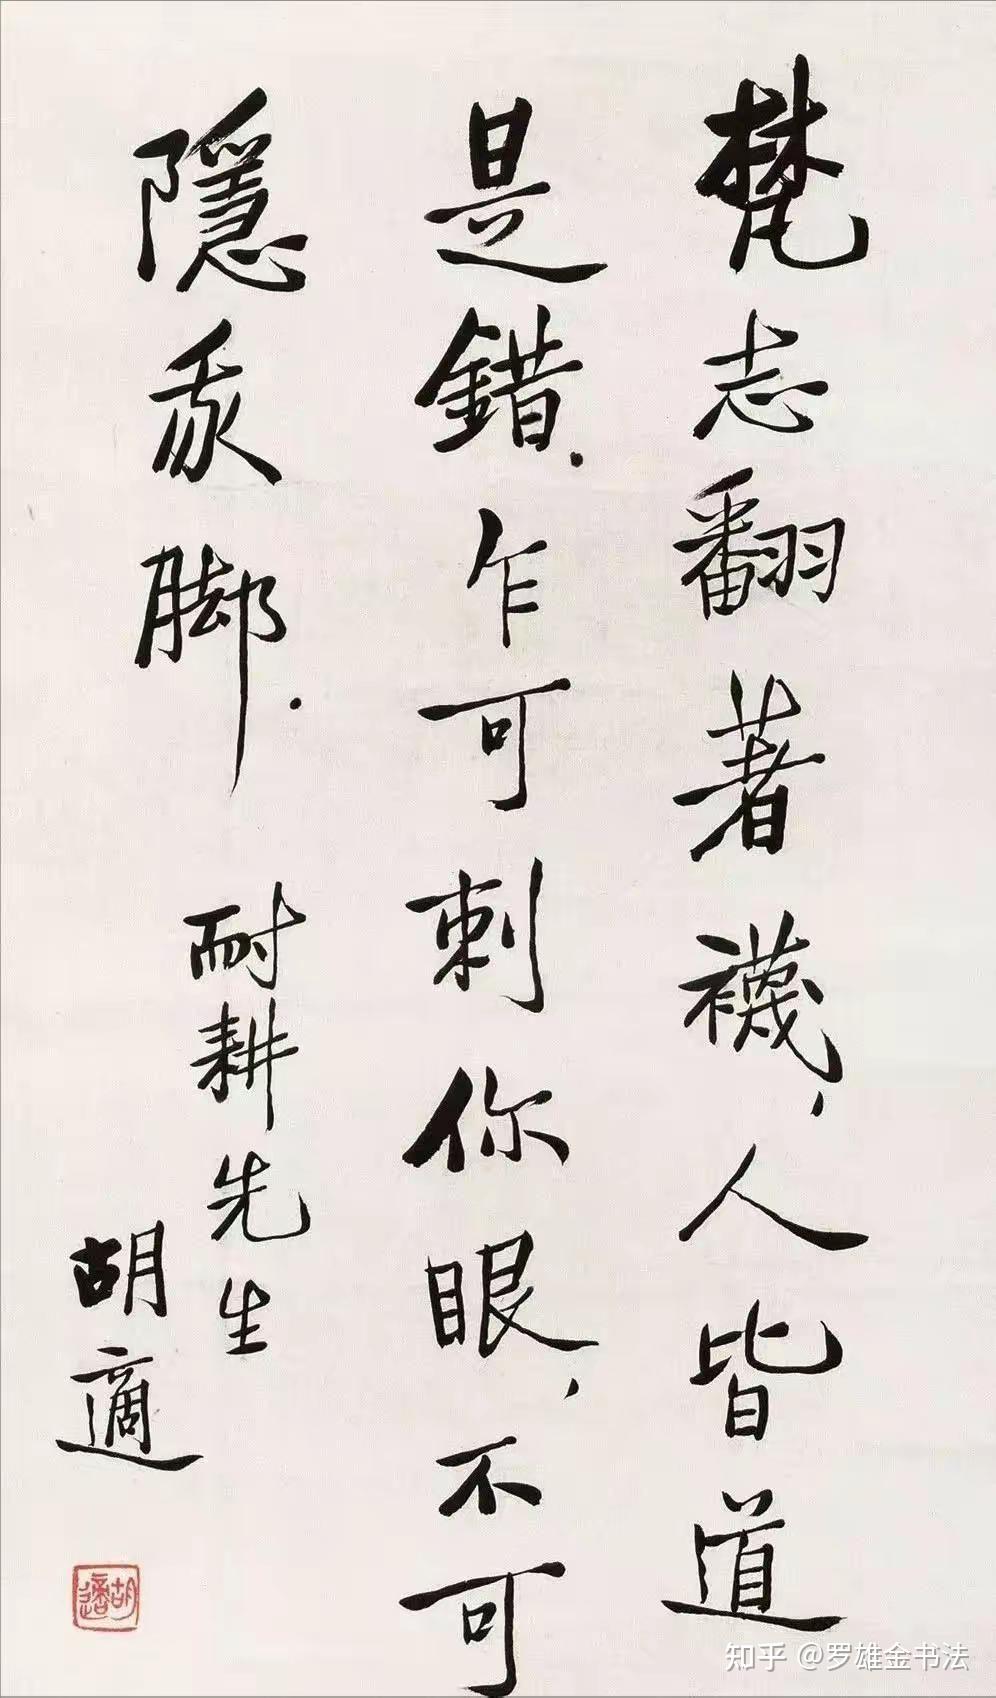 梵志翻著襪，人皆道
是錯．乍可刺你眼，不可
隱我脚．
耐耕先生
胡適
胡適
知乎 @罗雄金书法